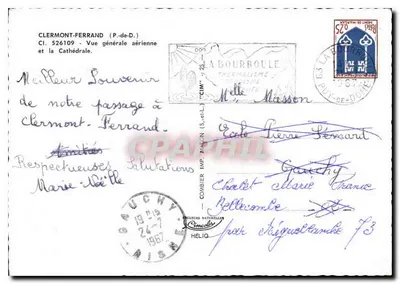 CLERMONT-FERRAND (P.-de-D.)
Cl. 526109 - Vue générale aérienne
et la Cathédrale.
Meilleur Souvenir
de notre passage à
Clermont-Ferrand.
Amitiés
Respectueuses Salutations
Marie-Noëlle
GAUCHY
19 H
24-7
1967
AISNE
COMBIER IMP. MACON (S.-&-L.) "CIM"
HELIO
LA BOURBOULE
63 LA BOURBOULE
PUY-DE-DOME
Melle Masson
Ecole Pierre Semard
Gauchy
Chalet Marie France
Bellecombe
par Aigueblanche 73
cartexpert